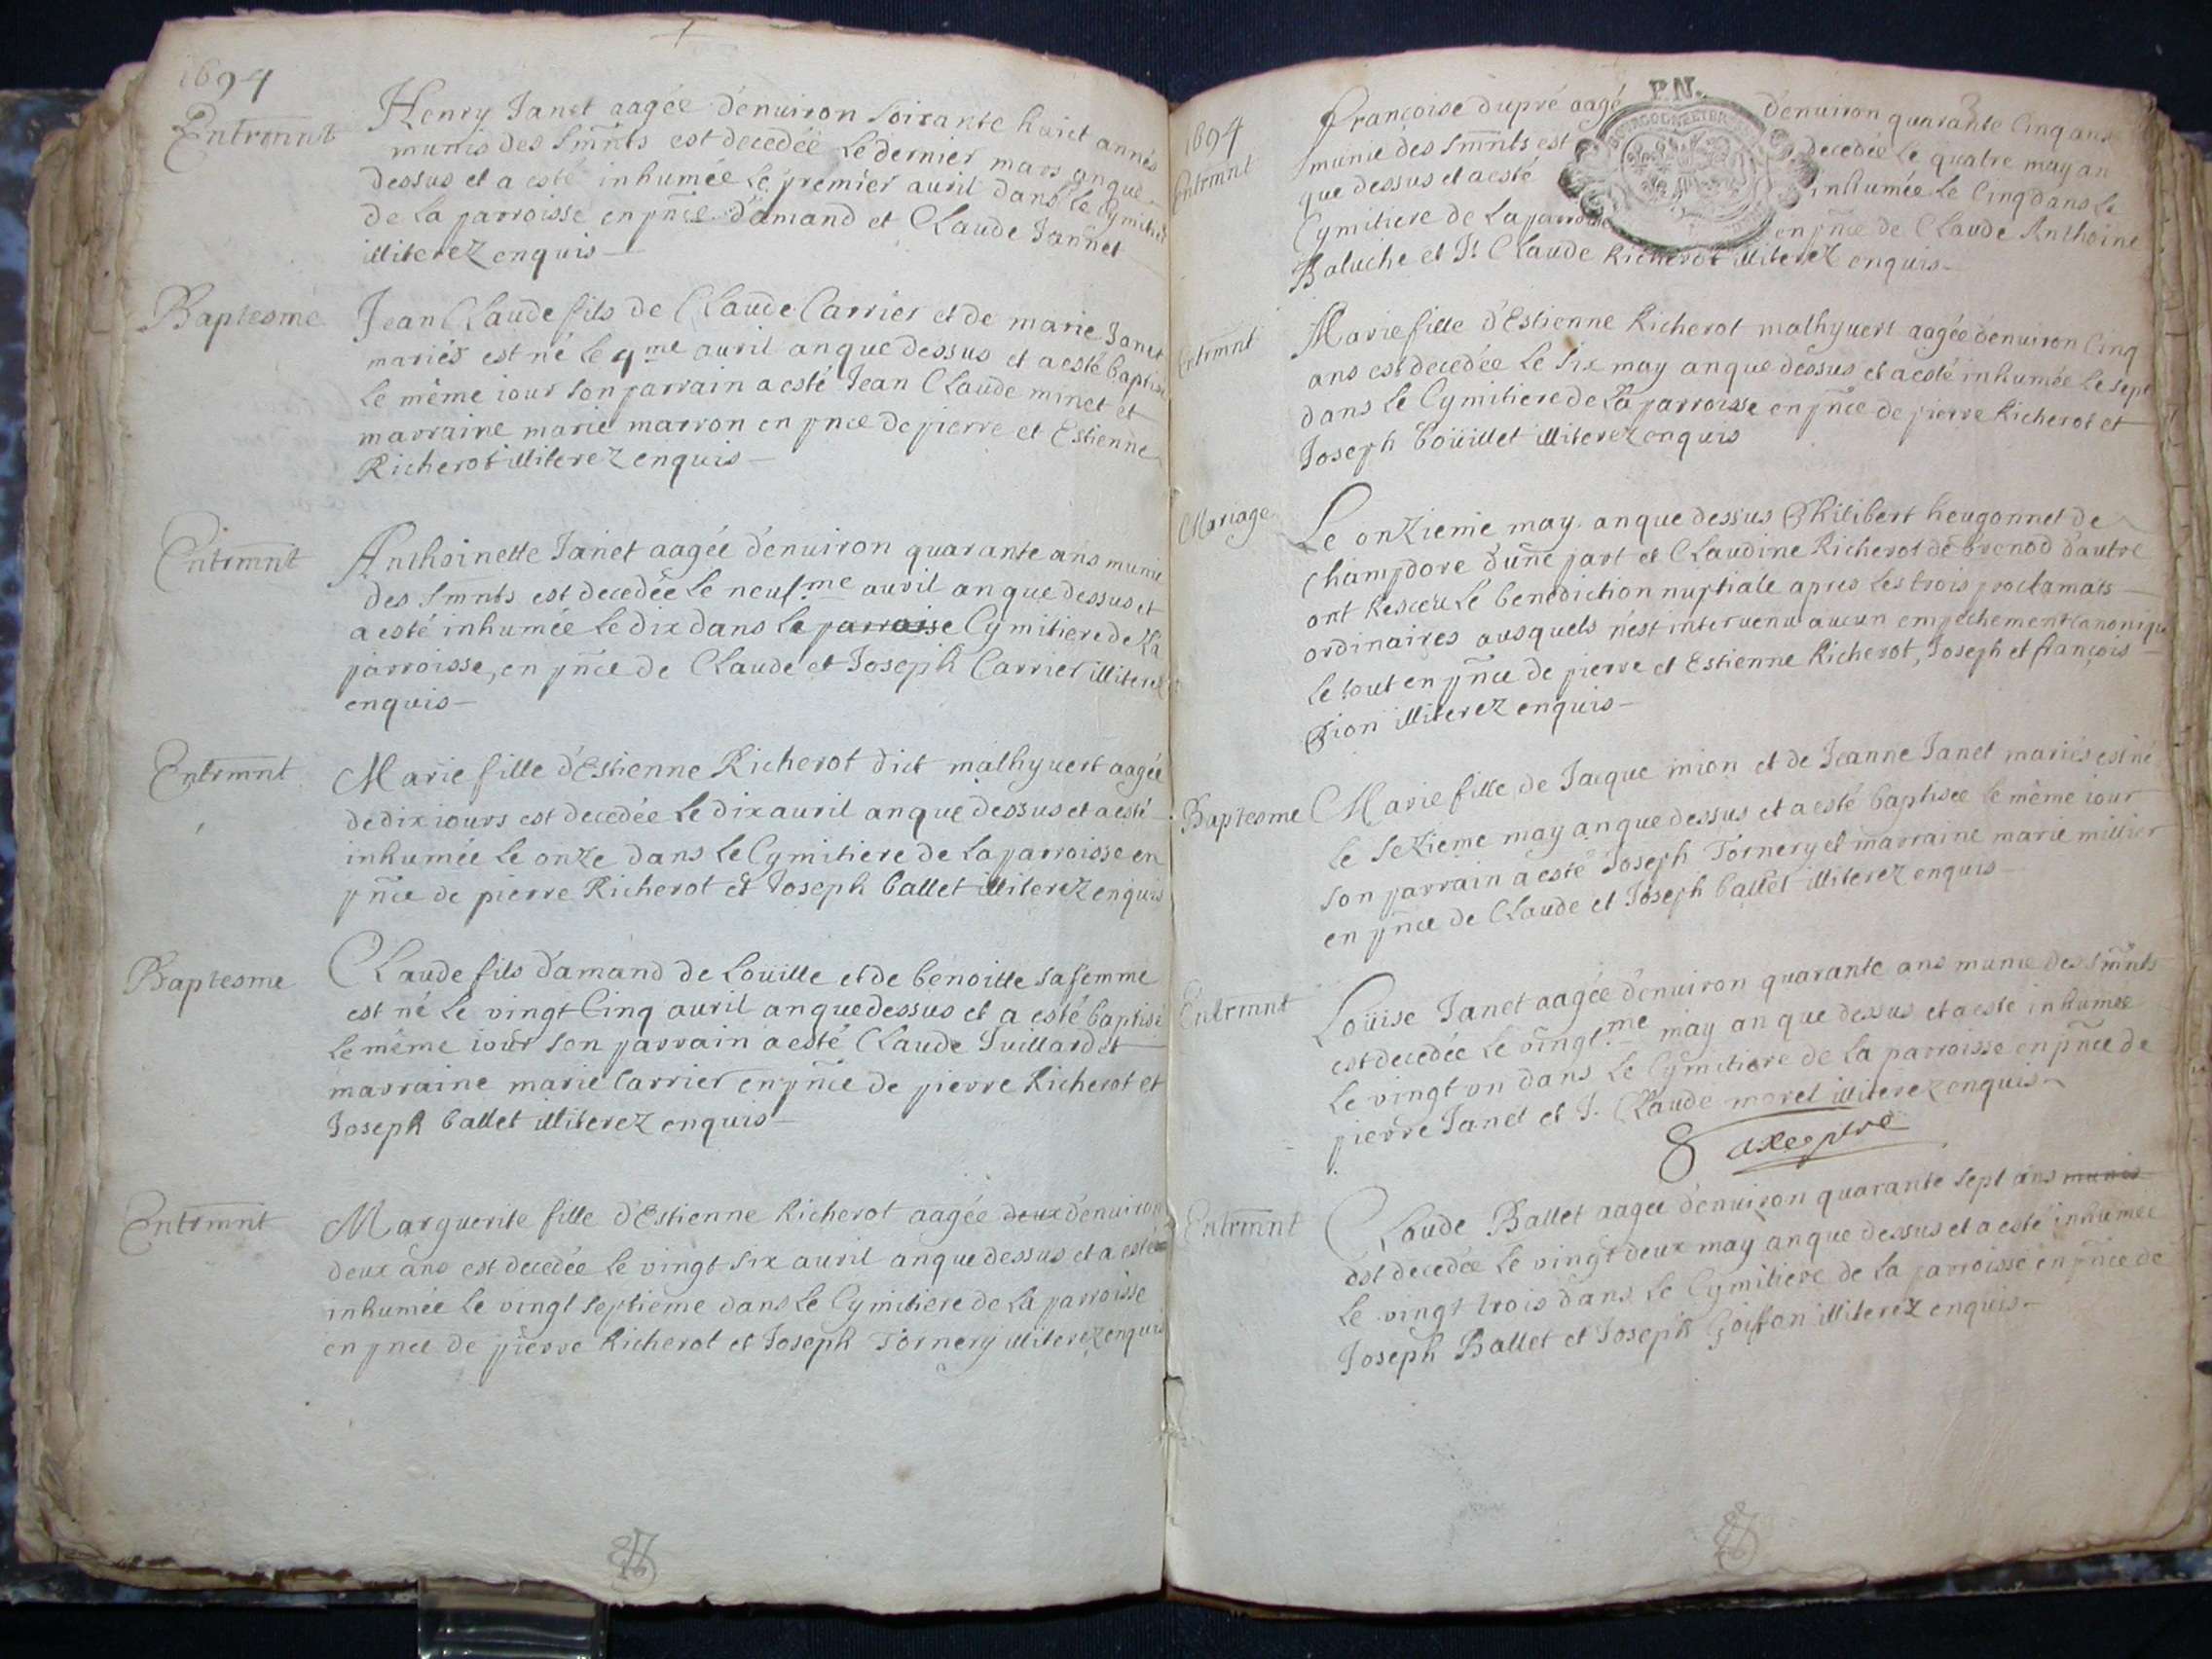 1694
Entrmnt
Henry Janet aagée d'enuiron soixante huict annés
munis des smnts est decedée le dernier mars an que
dessus et a esté inhumée le premier auril dans le Cymitiere
de la parroisse en pnce d'amand et Claude Jannet
illiterez enquis
Baptesme
Jean Claude fils de Claude Carrier et de marie Janet
mariés est né le 4me auril an que dessus et a esté baptisé
le même iour son parrain a esté Jean Claude minet et
marraine marie marron en pnce de pierre et Estienne
Richerot illiterez enquis
Entrmnt
Anthoinette Janet aagée d'enuiron quarante ans munie
des smnts est decedée le neufme auril an que dessus et
a esté inhumée le dix dans le parroisse Cymitiere de la
parroisse, en pnce de Claude et Joseph Carrier illiterez
enquis
Entrmnt
Marie fille d'Estienne Richerot dict mathyuert aagée
de dix iours est decedée le dix auril an que dessus et a esté
inhumée le onze dans le Cymitiere de la parroisse en
pnce de pierre Richerot et Joseph ballet illiterez enquis
Baptesme
Claude fils d'amand de Loüille et de benoitte sa femme
est né le vingt Cinq auril an que dessus et a esté baptisé
le même iour son parrain a esté Claude Juillard et
marraine marie Carrier en pnce de pierre Richerot et
Joseph ballet illiterez enquis
Entrmnt
Marguerite fille d'Estienne Richerot aagée deux d'enuiron
deux ans est decedée le vingt six auril an que dessus et a esté
inhumée le vingt septieme dans le Cymitiere de la parroisse
en pnce de pierre Richerot et Joseph Tornery illiterez enquis
P.N.
1694
Entrmnt
françoise dupré aagé d'enuiron quarante Cinq ans
munie des smnts est decedée le quatre may an
que dessus et a esté inhumée le Cinq dans le
Cymitiere de la parroisse en pnce de Claude Anthoine
Baluche et J. Claude Richerot illiterez enquis
Entrmnt
Marie fille d'Estienne Richerot mathyuert aagée d'enuiron Cinq
ans est decedée le six may an que dessus et a esté inhumée le sept
dans le Cymitiere de la parroisse en pnce de pierre Richerot et
Joseph boüillet illiterez enquis
Mariage
Le onzieme may an que dessus Philibert heugonnet de
Champdore d'une part et Claudine Richerot de brenod d'autre
ont Resceu le benediction nuptiale apres les trois proclamats
ordinaires ausquels n'est interuenu aucun empechement Canonique
le tout en pnce de pierre et Estienne Richerot, Joseph et françois
Pion illiterez enquis
Baptesme
Marie fille de Jacque mion et de Jeanne Janet mariés est né
le sezieme may an que dessus et a esté baptisée le même iour
son parrain a esté Joseph Tornery et marraine marie millier
en pnce de Claude et Joseph ballet illiterez enquis
Entrmnt
Loüise Janet aagée d'enuiron quarante ans munie des smnts
est decedée le vingtme may an que dessus et a esté inhumée
le vingt vn dans le Cymitiere de la parroisse en pnce de
pierre Janet et J. Claude morel illiterez enquis
Entrmnt
Claude Ballet aagée d'enuiron quarante sept ans munis
est decedée le vingt deux may an que dessus et a esté inhumée
le vingt trois dans le Cymitiere de la parroisse en pnce de
Joseph Ballet et Joseph Goiffon illiterez enquis